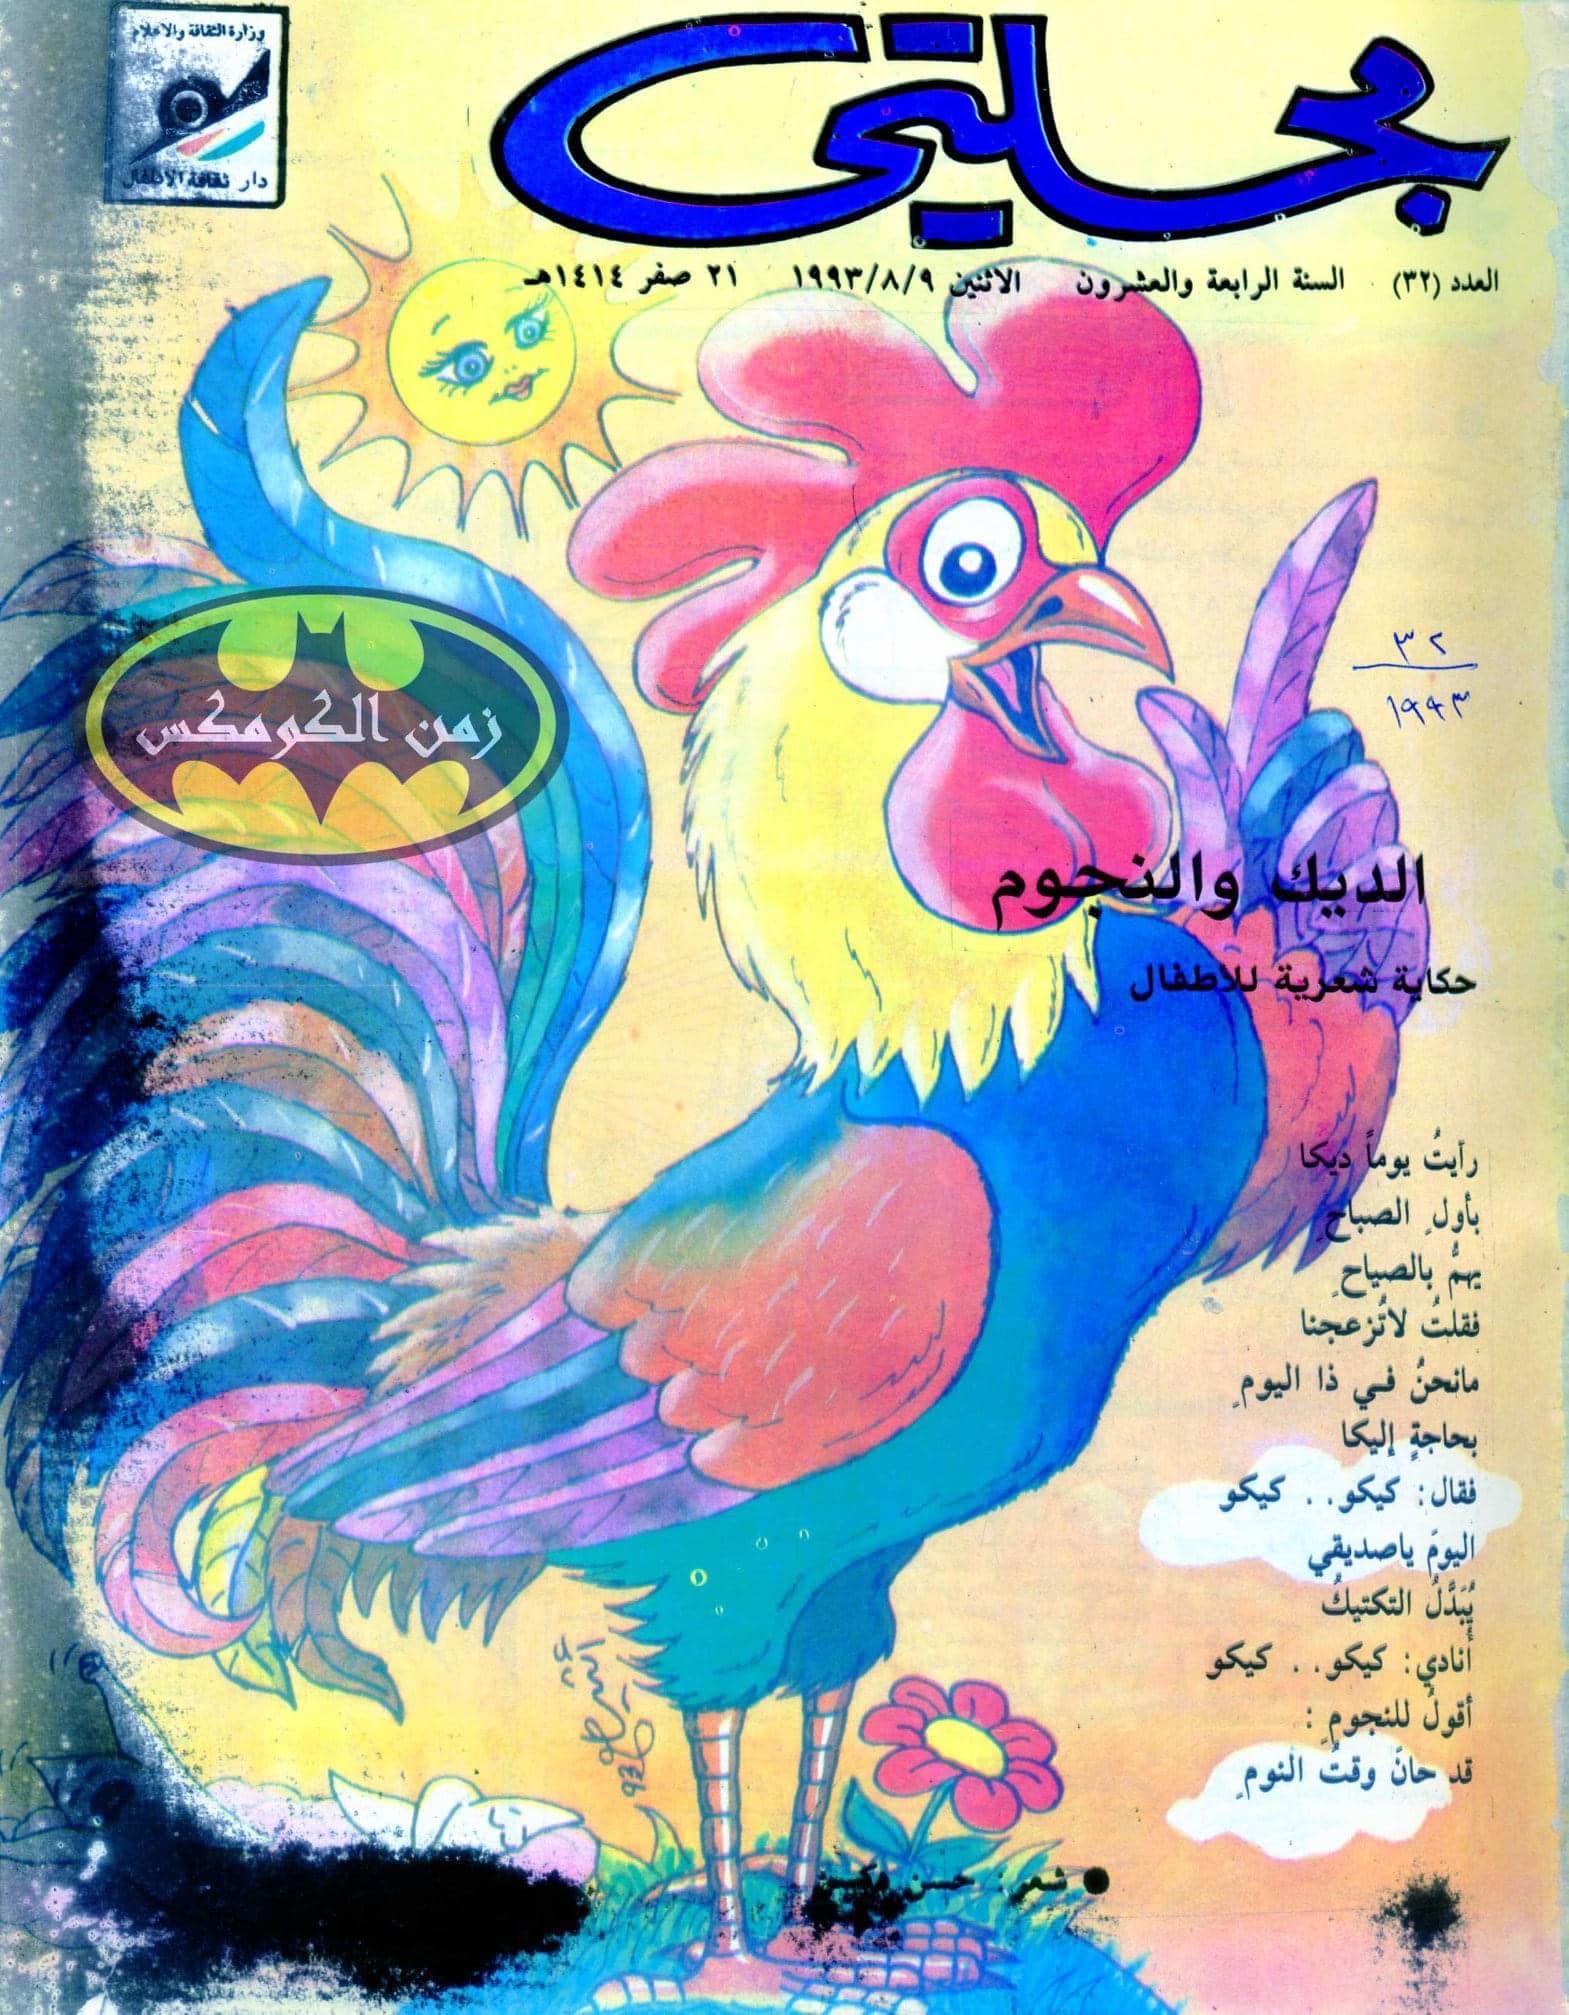 وزارة الثقافة والاعلام
دار ثقافة الاطفال
مجلتي
العدد (٣٢) السنة الرابعة والعشرون الاثنين ١٩٩٣/٨/٩ ٢١ صفر ١٤١٤هـ
٣٢
١٩٩٣
زمن الكومكس
الديك والنجوم
حكاية شعرية للأطفال
رأيتُ يوماً ديكا
بأولِ الصباحِ
يهمُّ بالصياحِ
فقلتُ لاتُزعجنا
مانحنُ في ذا اليومِ
بحاجةٍ إليكا
فقال: كيكو.. كيكو
اليومَ ياصديقي
يُبَدَّلُ التكتيكُ
أنادي: كيكو.. كيكو
أقولُ للنجومِ:
قد حانَ وقتُ النومِ
● شعر: حسن
93